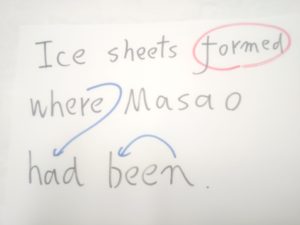 Ice sheets formed
where Masao
had been.